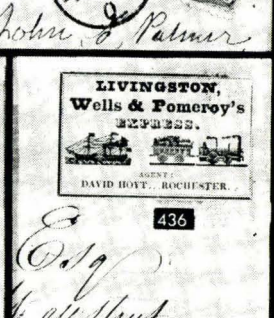 John E. Palmer
LIVINGSTON,
Wells & Pomeroy's
EXPRESS.
AGENT:
DAVID HOYT.. ROCHESTER.
436
Esq